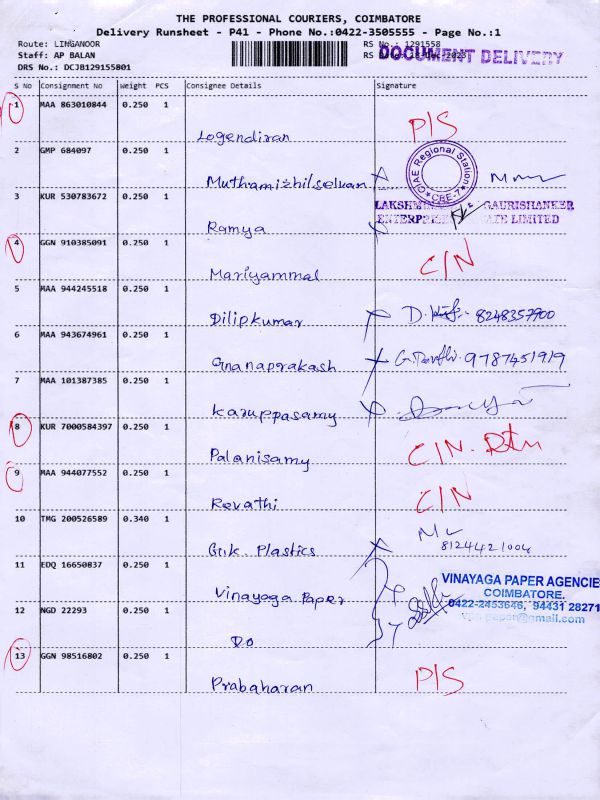 THE PROFESSIONAL COURIERS, COIMBATORE
Delivery Runsheet - P41 - Phone No.:0422-3505555 - Page No.:1
Route: LINGANOOR RS No.: 1291558
Staff: AP BALAN RS
DRS No.: DCJ8129155801
DOCUMENT DELIVERY
S No Consignment No Weight PCS Consignee Details Signature
1 MAA 863010844 0.250 1
Logendiran P/S
2 GMP 684097 0.250 1
Muthamizhilselvan
CIAE Regional Station
CBE-7
3 KUR 530783672 0.250 1
Ramya
GAURISHANKER
LIMITED
4 GGN 910385091 0.250 1
Mariyammal C/N
5 MAA 944245518 0.250 1
Dilipkumar D. 8248357900
6 MAA 943674961 0.250 1
Gnanaprakash 9787451919
7 MAA 101387385 0.250 1
Karuppasamy
8 KUR 7000584397 0.250 1
Palanisamy C/N. Rtn
9 MAA 944077552 0.250 1
Revathi C/N
10 TMG 200526589 0.340 1
Gnk. Plastics
8124421004
11 EDQ 16650837 0.250 1
Vinayaga Paper
VINAYAGA PAPER AGENCIE
COIMBATORE.
0422-2453646, 94431 28271
12 NGD 22293 0.250 1
Do
13 GGN 98516802 0.250 1
Prabaharan P/S